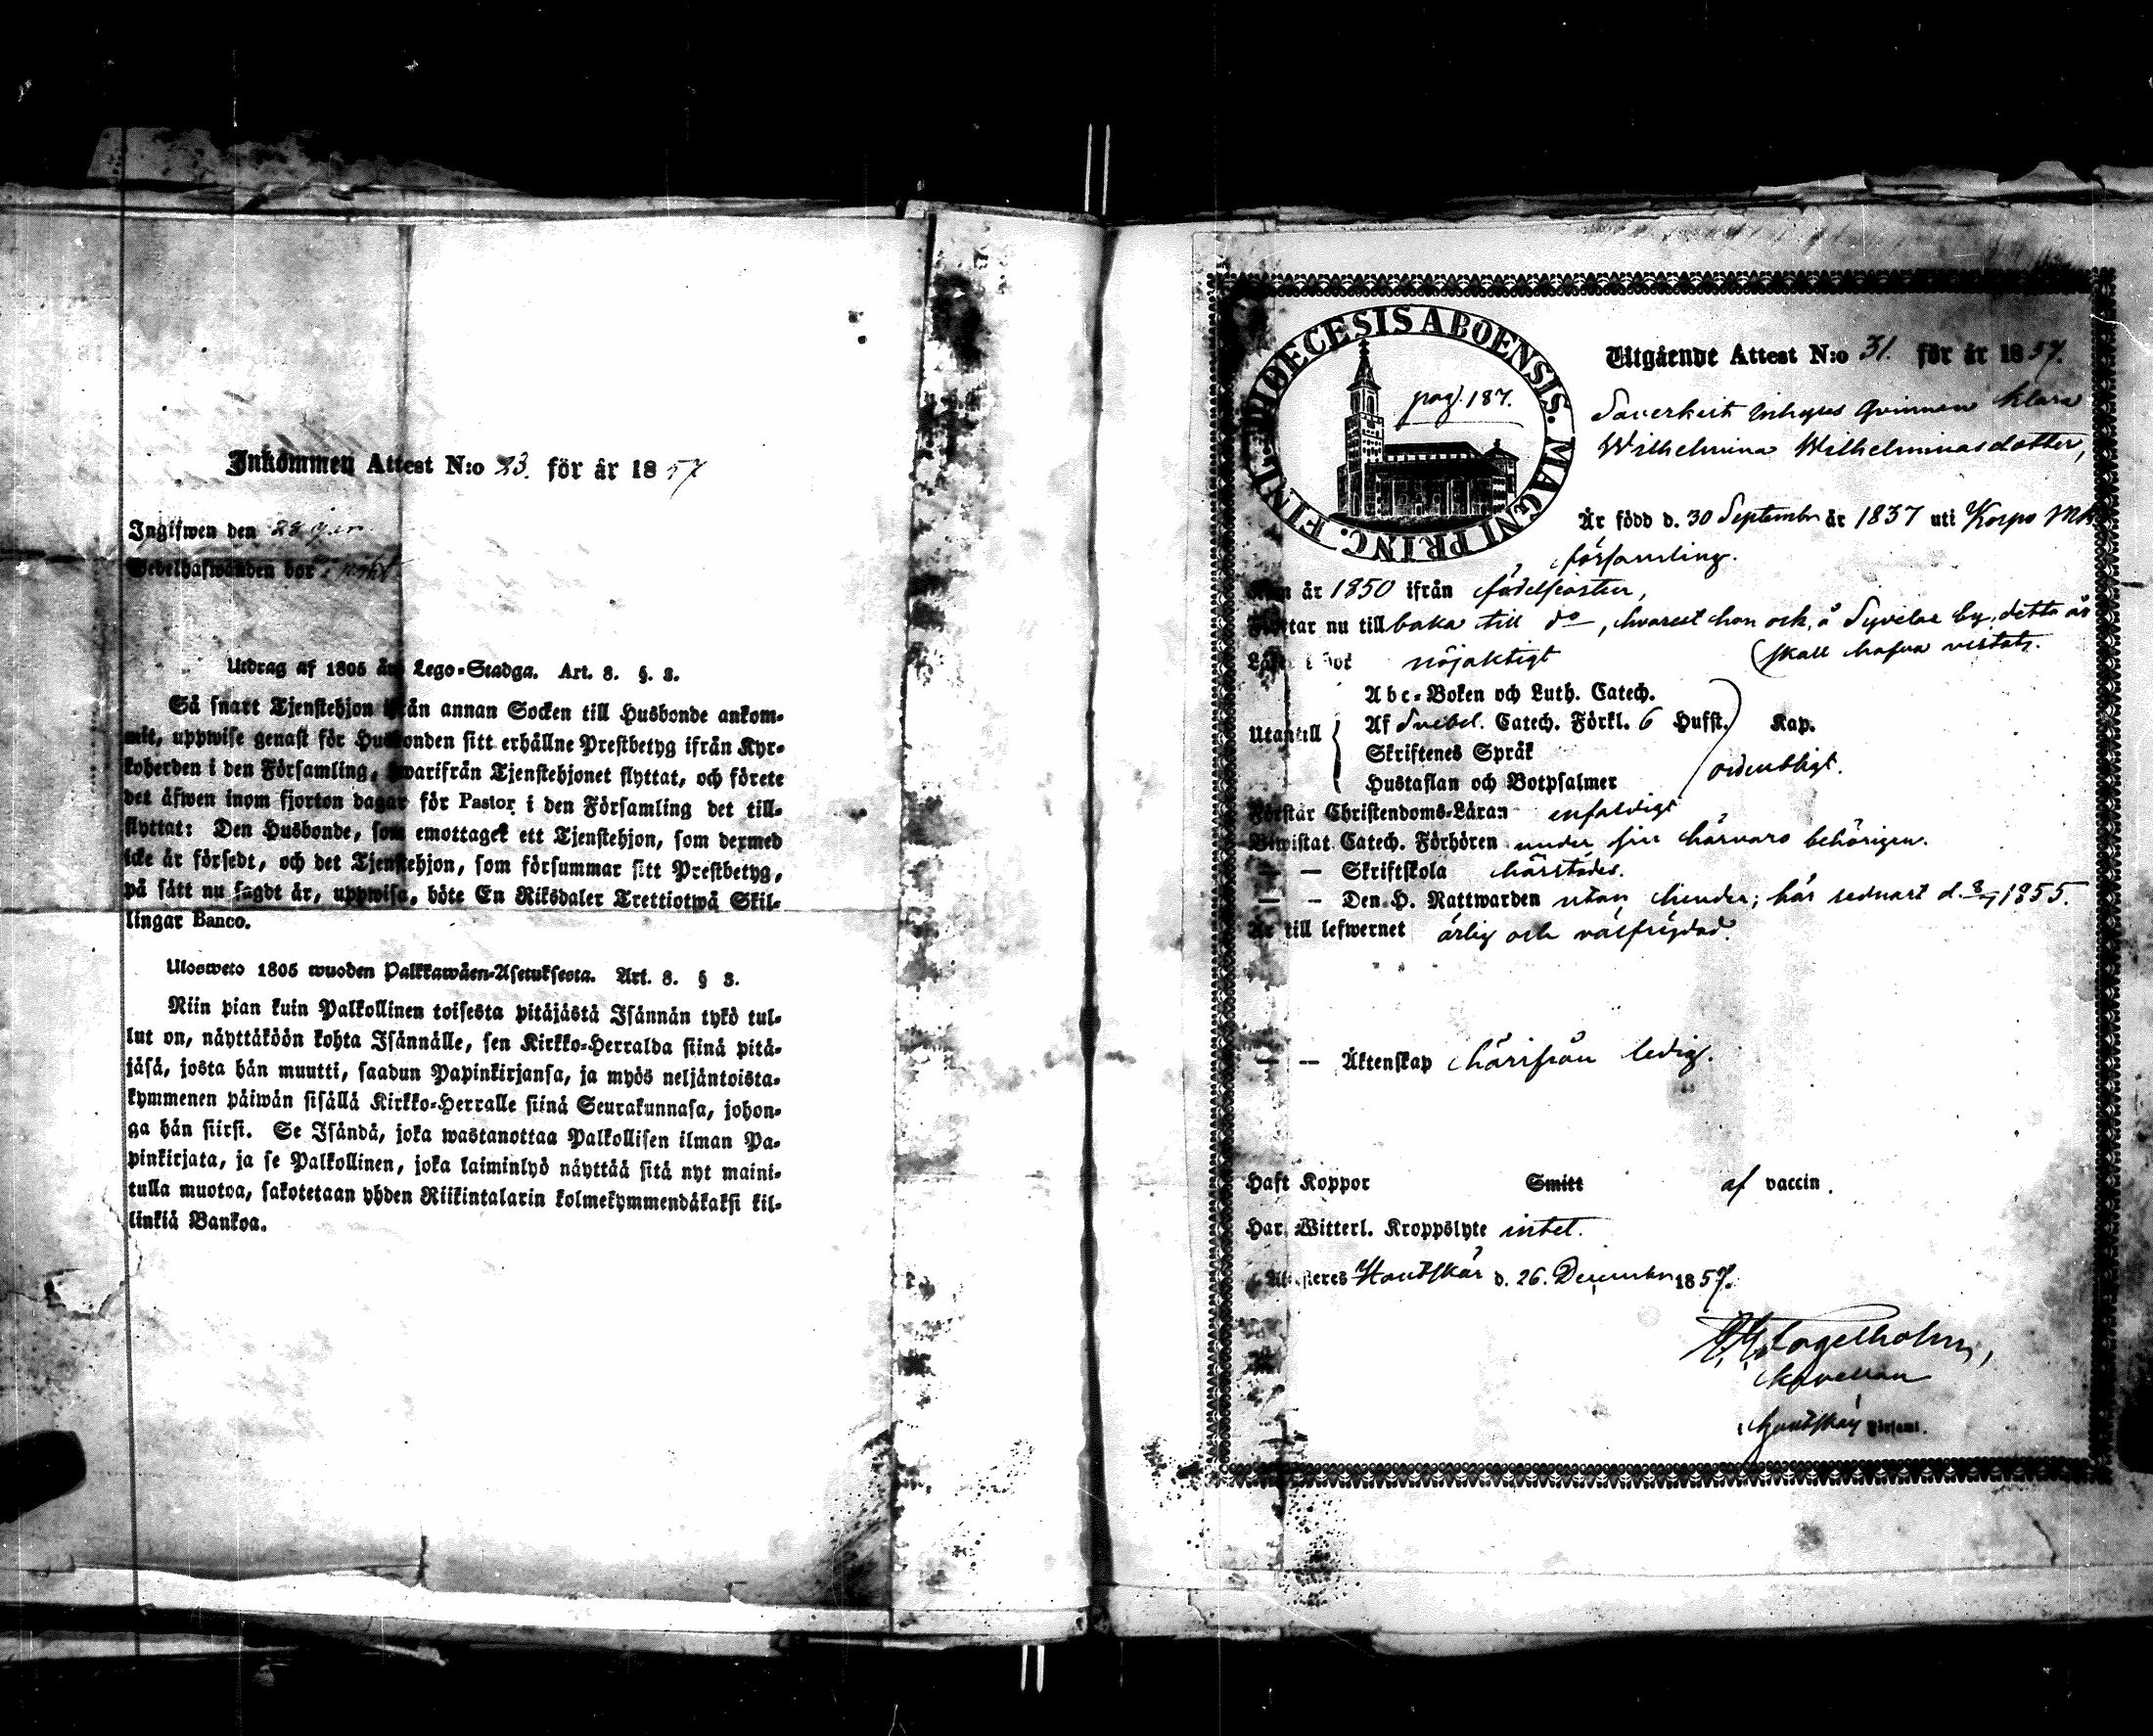 Inkommen Attest N:o 23. för år 1857
Ingifwen den 28
Utdrag af 1805 års Lego-Stadga. Art. 8. §. 3.
Så snart Tjenstehjon ifrån annan Socken till Husbonde ankom-
mit, uppwise genast för Husbonden sitt erhållne Prestbetyg ifrån Kyr-
koherden i den Församling, hwarifrån Tjenstehjonet flyttat, och förete
det äfwen inom fjorton dagar för Pastor i den Församling det till-
flyttat: Den Husbonde, som emottaget ett Tjenstehjon, som dermed
icke är försedt, och det Tjenstehjon, som försummar sitt Prestbetyg,
på sätt nu sagdt är, uppwisa, böte En Riksdaler Trettiotwå Skil-
lingar Banco.
Ulosweto 1805 wuoden Palkkawäen-Asetuksesta. Art. 8. § 3.
Niin pian kuin Palkollinen toisesta pitäjästä Isännän tykö tul-
lut on, näyttäköön kohta Isännälle, sen Kirkko-Herralda siinä pitä-
jäsä, josta hän muutti, saadun Papinkirjansa, ja myös neljäntoista-
kymmenen päiwän sisällä Kirkko-Herralle siinä Seurakunnasa, johon-
ga hän siirsi. Se Isändä, joka wastanottaa Palkollisen ilman Pa-
pinkirjata, ja se Palkollinen, joka laiminlyö näyttää sitä nyt maini-
tulla muotoa, sakotetaan yhden Riikintalarin kolmekymmendäkaksi kil-
linkiä Bankoa.
DIŒCESIS ABOENSIS. MAGNI PRINC. FINL.
pag. 187.
Utgående Attest N:o 31. för år 1857.
Inhyses Qvinnan Klara
Wilhelmina Wilhelminasdotter,
Är född d. 30 Septembr år 1837 uti Korpo
församling.
år 1850 ifrån födelseorten,
Flyttar nu tillbaka till do, hvarest hon ock, å by, detta år
skall hafva vistats.
Läser i bok nöjaktigt
Abc-Boken och Luth. Catech.
Utantill Af Svebel. Catech. Förkl. 6 Hufst. Kap.
Skriftenes Språk
Hustaflan och Botpsalmer ordentligt.
Förstår Christendoms-Läran enfaldigt
Biwistat Catech. Förhören under sin härvaro behörigen.
— — Skriftskola härstädes.
— — Den H. Nattwarden utan hinder; här sednast d. 8/7 1855.
Är till lefwernet ärlig och välfrejdad.
— — Äktenskap härifrån ledig.
Haft Koppor Smitt af vaccin.
Har Witterl. Kroppslyte intet.
Attesteres Houtskär d. 26. December 1857.
Fogelholm,
Kapellan
i Houtskär Församl.